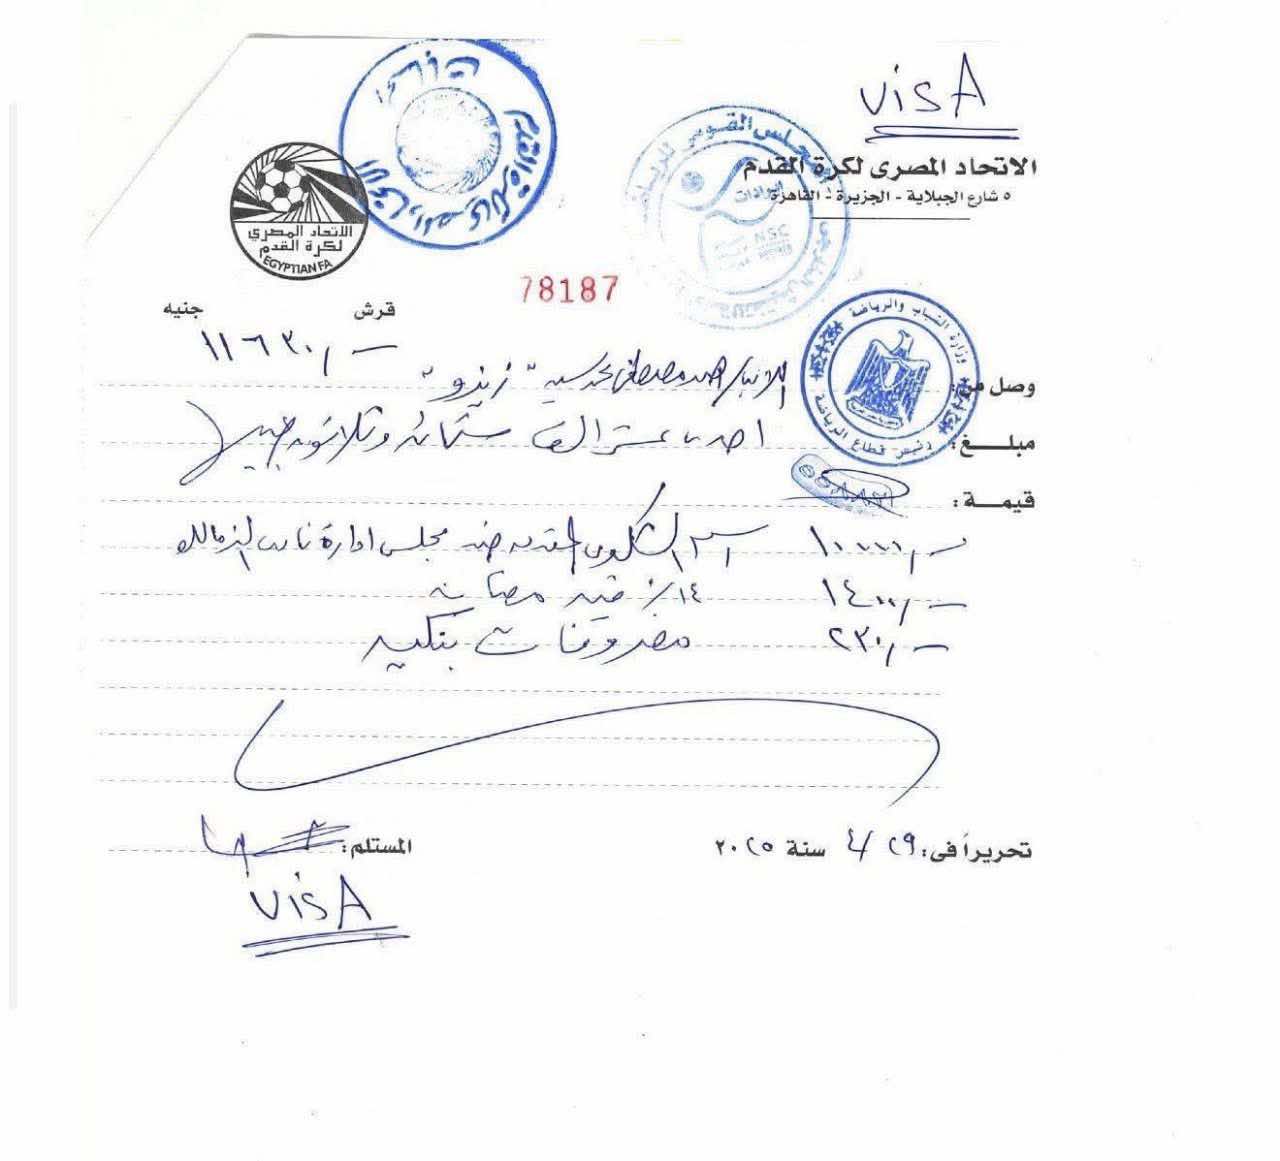 VISA
الاتحاد المصرى لكرة القدم
٥ شارع الجبلاية - الجزيرة - القاهرة
المجلس القومى للرياضة
NSC
الاتحاد المصري
لكرة القدم
EGYPTIAN FA
78187
قرش جنيه
١١٦٣٠/-
وزارة الشباب والرياضة
رئيس قطاع الرياضة
وصل من: اللاعب / احمد مصطفى محمد سيد "زيزو"
مبلغ: احدى عشر الف ستمائة وثلاثون جنيه
قيمة:
١٠٠٠٠/- رسم الشكوى المقدمة ضد مجلس ادارة نادى الزمالك
١٤٠٠/- ١٤٪ قيمة مضافة
٢٣٠/- مصروفات بنكية
تحريراً فى: ٢٩ / ٤ سنة ٢٠٢٥
المستلم:
VISA